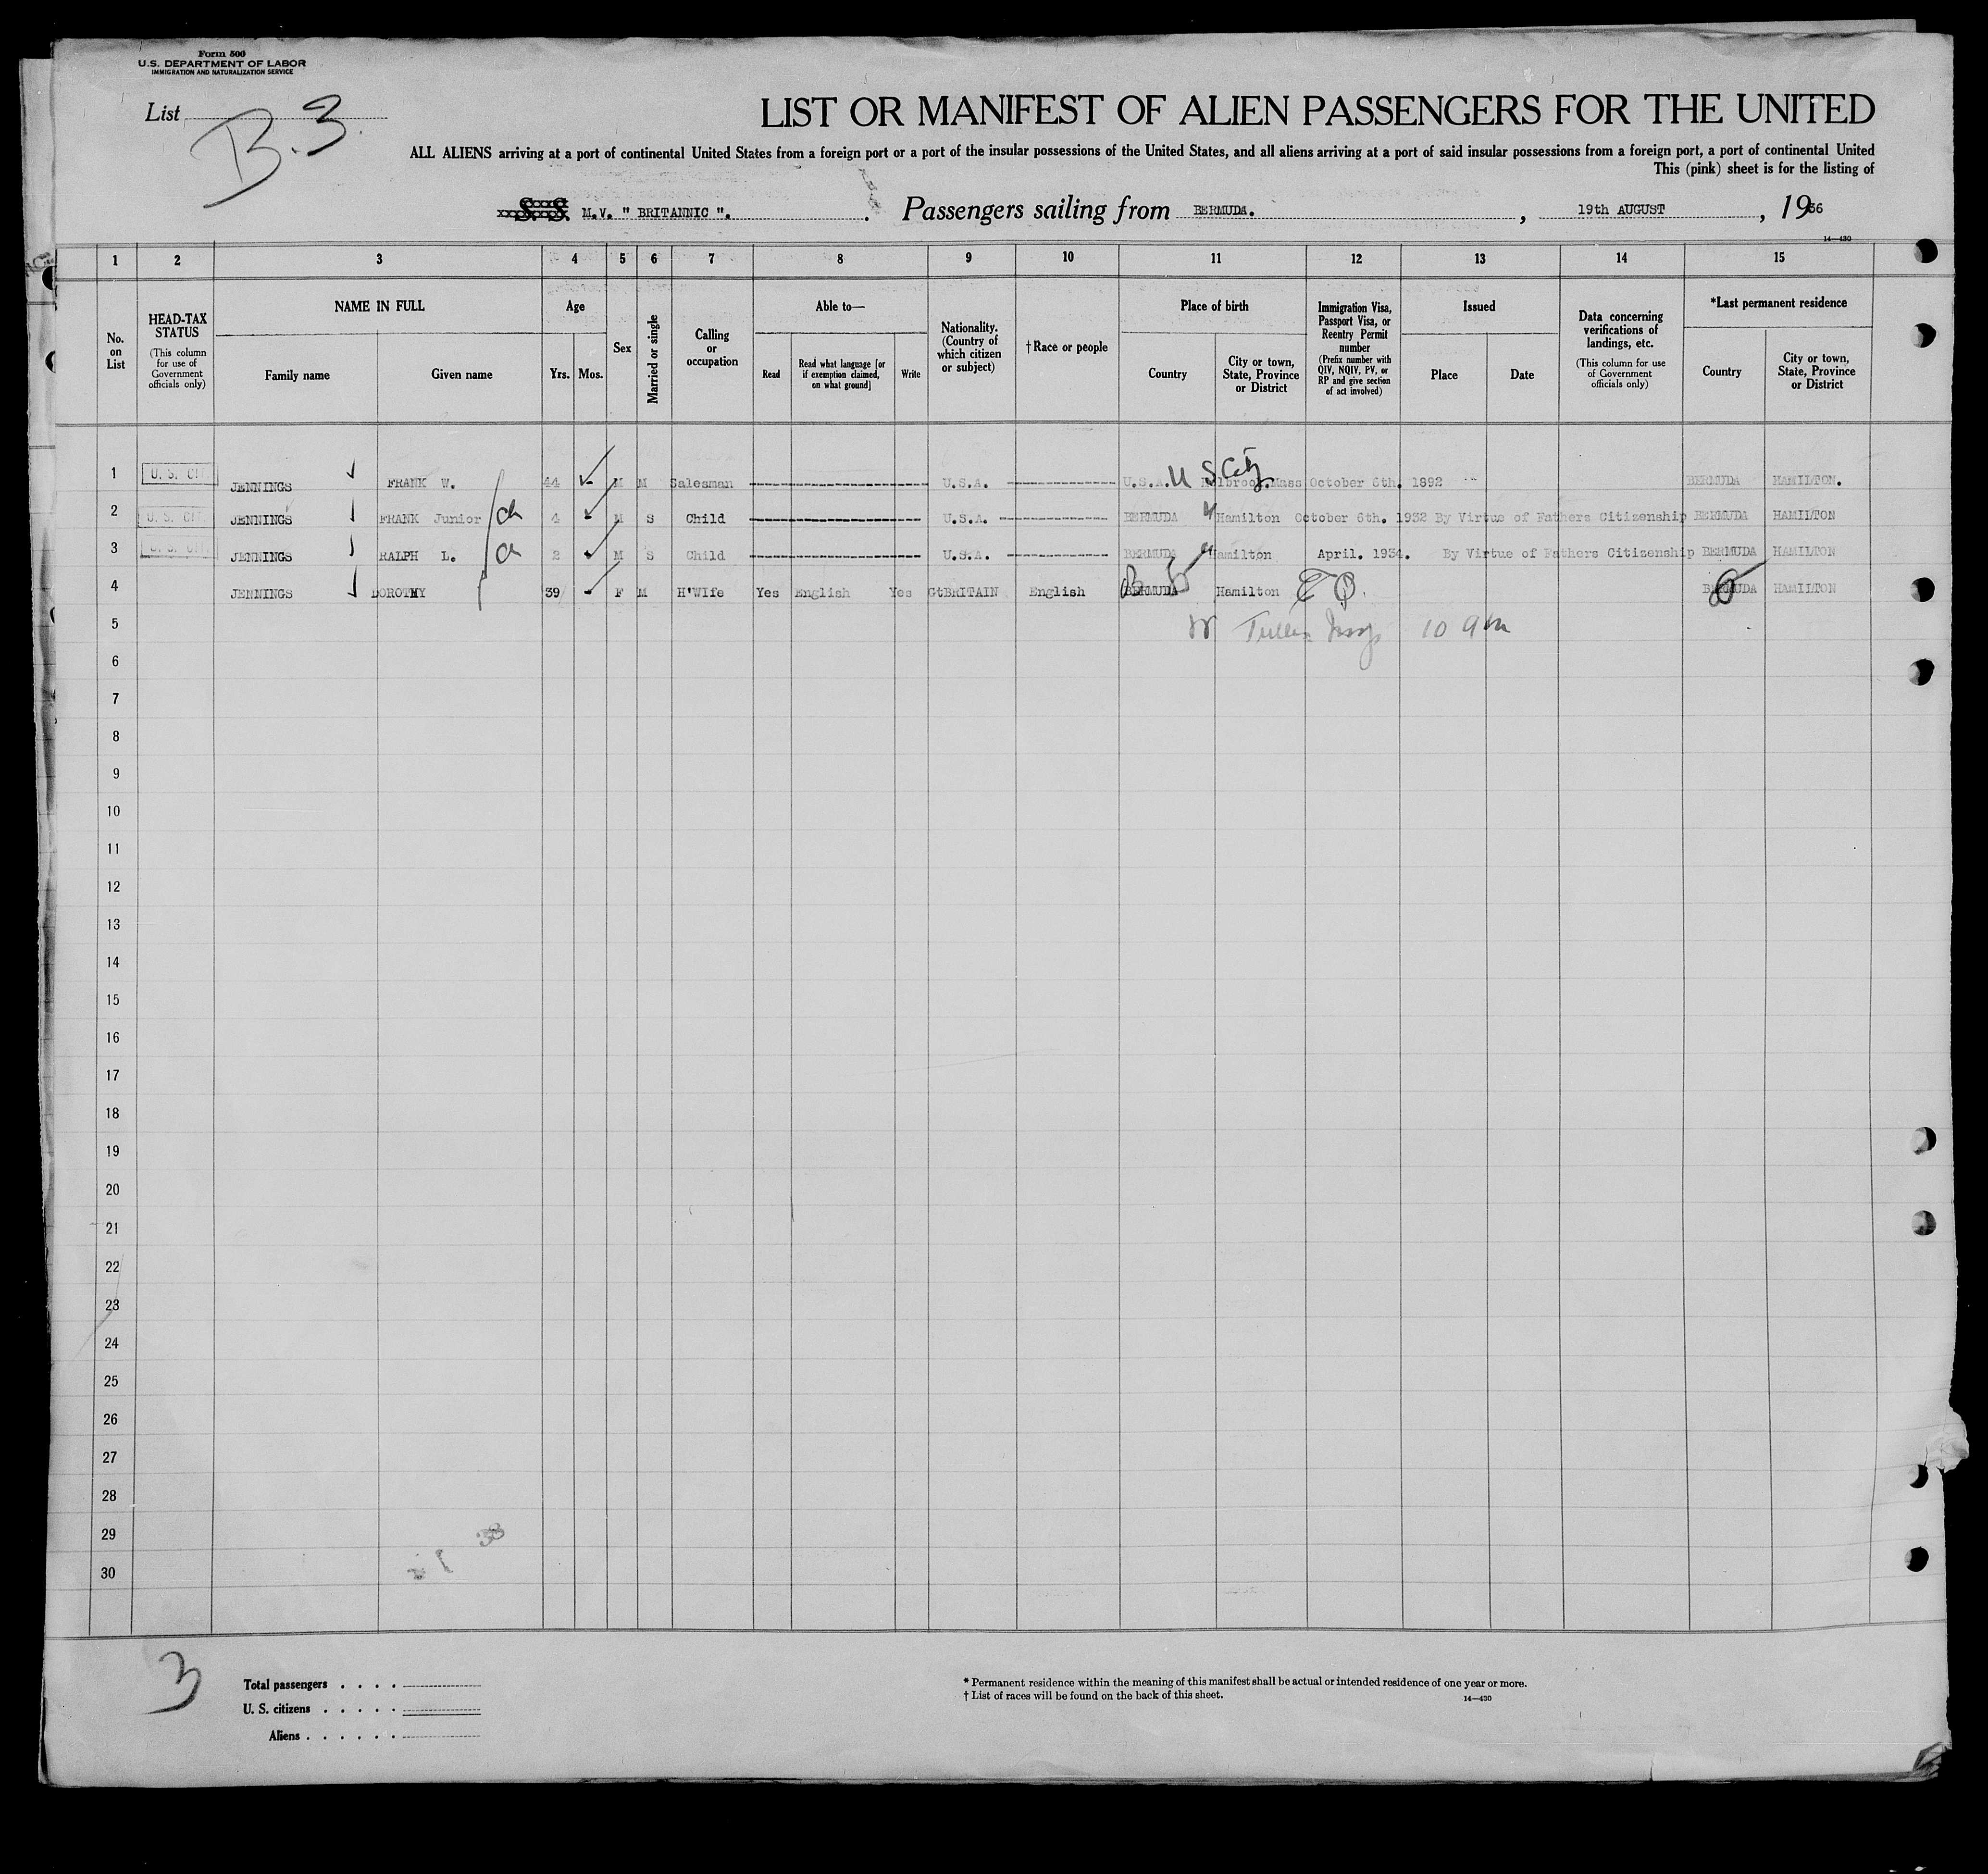 Form 500
U.S. DEPARTMENT OF LABOR
IMMIGRATION AND NATURALIZATION SERVICE
List B.3.
LIST OR MANIFEST OF ALIEN PASSENGERS FOR THE UNITED
ALL ALIENS arriving at a port of continental United States from a foreign port or a port of the insular possessions of the United States, and all aliens arriving at a port of said insular possessions from a foreign port, a port of continental United
This (pink) sheet is for the listing of
S. S. M.V. " BRITANNIC ". Passengers sailing from BERMUDA. , 19th AUGUST , 1936
14—430
1 2 3 4 5 6 7 8 9 10 11 12 13 14 15
No. on List
HEAD-TAX STATUS
(This column for use of Government officials only)
NAME IN FULL
Family name
Given name
Age
Yrs. Mos.
Sex
Married or single
Calling or occupation
Able to—
Read
Read what language [or if exemption claimed, on what ground]
Write
Nationality. (Country of which citizen or subject)
†Race or people
Place of birth
Country
City or town, State, Province or District
Immigration Visa, Passport Visa, or Reentry Permit number
(Prefix number with QIV, NQIV, PV, or RP and give section of act involved)
Issued
Place
Date
Data concerning verifications of landings, etc.
(This column for use of Government officials only)
*Last permanent residence
Country
City or town, State, Province or District
1 U. S. CIT. JENNINGS FRANK W. 44 M M Salesman U.S.A. U.S.A. U S City Holbrook.Mass October 6th. 1892 BERMUDA HAMILTON.
2 U. S. CIT. JENNINGS FRANK Junior ch 4 M S Child U.S.A. BERMUDA Hamilton October 6th. 1932 By Virtue of Fathers Citizenship BERMUDA HAMILTON
3 U. S. CIT. JENNINGS RALPH L. 2 M S Child U.S.A. BERMUDA Hamilton April. 1934. By Virtue of Fathers Citizenship BERMUDA HAMILTON
4 JENNINGS DOROTHY 39 F M H'WIfe Yes English Yes GtBRITAIN English BERMUDA Hamilton BERMUDA HAMILTON
5
6
7
8
9
10
11
12
13
14
15
16
17
18
19
20
21
22
23
24
25
26
27
28
29
30
3
Total passengers . . . .
U. S. citizens . . . . .
Aliens . . . . . .
* Permanent residence within the meaning of this manifest shall be actual or intended residence of one year or more.
† List of races will be found on the back of this sheet.
14—430